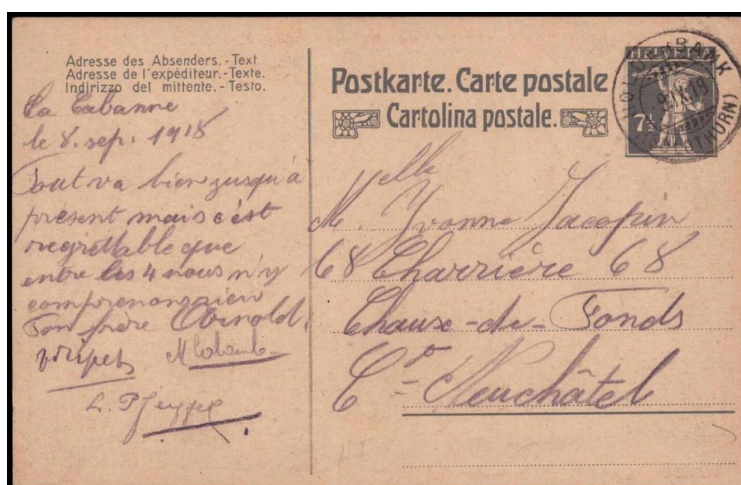 Adresse des Absenders. - Text
Adresse de l'expéditeur. - Texte.
Indirizzo del mittente. - Testo.
La Cabanne
le 8. sep. 1918
Tout va bien jusqu'à
présent mais c'est
regrettable que
entre les 4 nous n'y
comprenons rien
Ton frère
Postkarte. Carte postale
Cartolina postale.
HELVETIA
7½
M.elle Yvonne Jacopin
68 Charrière 68
Chaux-de-Fonds
Ct. Neuchâtel